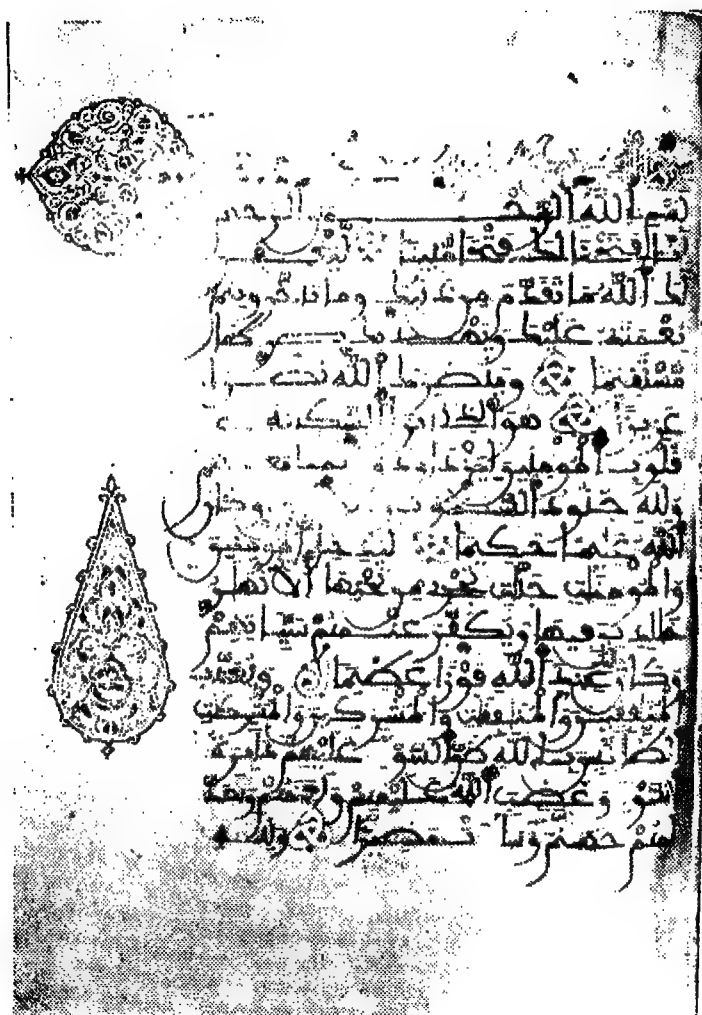 بسم الله الرحمن الرحيم
انا فتحنا لك فتحا مبينا ليغفر
لك الله ما تقدم من ذنبك وما تاخر ويتم
نعمته عليك ويهديك صرطا
مستقيما وينصرك الله نصرا
عزيزا هو الذي انزل السكينة في
قلوب المومنين ليزدادوا ايمنا مع
ولله جنود السموت وكان
الله عليما حكيما ليدخل المومنين
والمومنت جنت تجري من تحتها الانهر
خلدين فيها ويكفر عنهم سياتهم
وكان عند الله فوزا عظيما ويعذب
المنفقين والمنفقت والمشركين والمشركت
الظانين بالله ظن السوء عليهم دايرة
السوء وغضب الله عليهم ولعنهم واعد
لهم جهنم وساءت مصيرا ولله